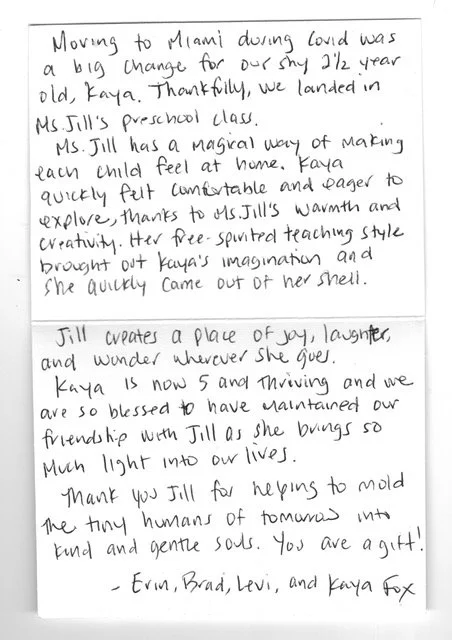 Moving to Miami during Covid was
a big change for our shy 2½ year
old, Kaya. Thankfully, we landed in
Ms. Jill's preschool class.
Ms. Jill has a magical way of making
each child feel at home. Kaya
quickly felt comfortable and eager to
explore, thanks to Ms. Jill's warmth and
creativity. Her free-spirited teaching style
brought out Kaya's imagination and
she quickly came out of her shell.
Jill creates a place of joy, laughter,
and wonder wherever she goes.
Kaya is now 5 and thriving and we
are so blessed to have maintained our
friendship with Jill as she brings so
much light into our lives.
Thank you Jill for helping to mold
the tiny humans of tomorrow into
kind and gentle souls. You are a gift!
- Erin, Brad, Levi, and Kaya Fox